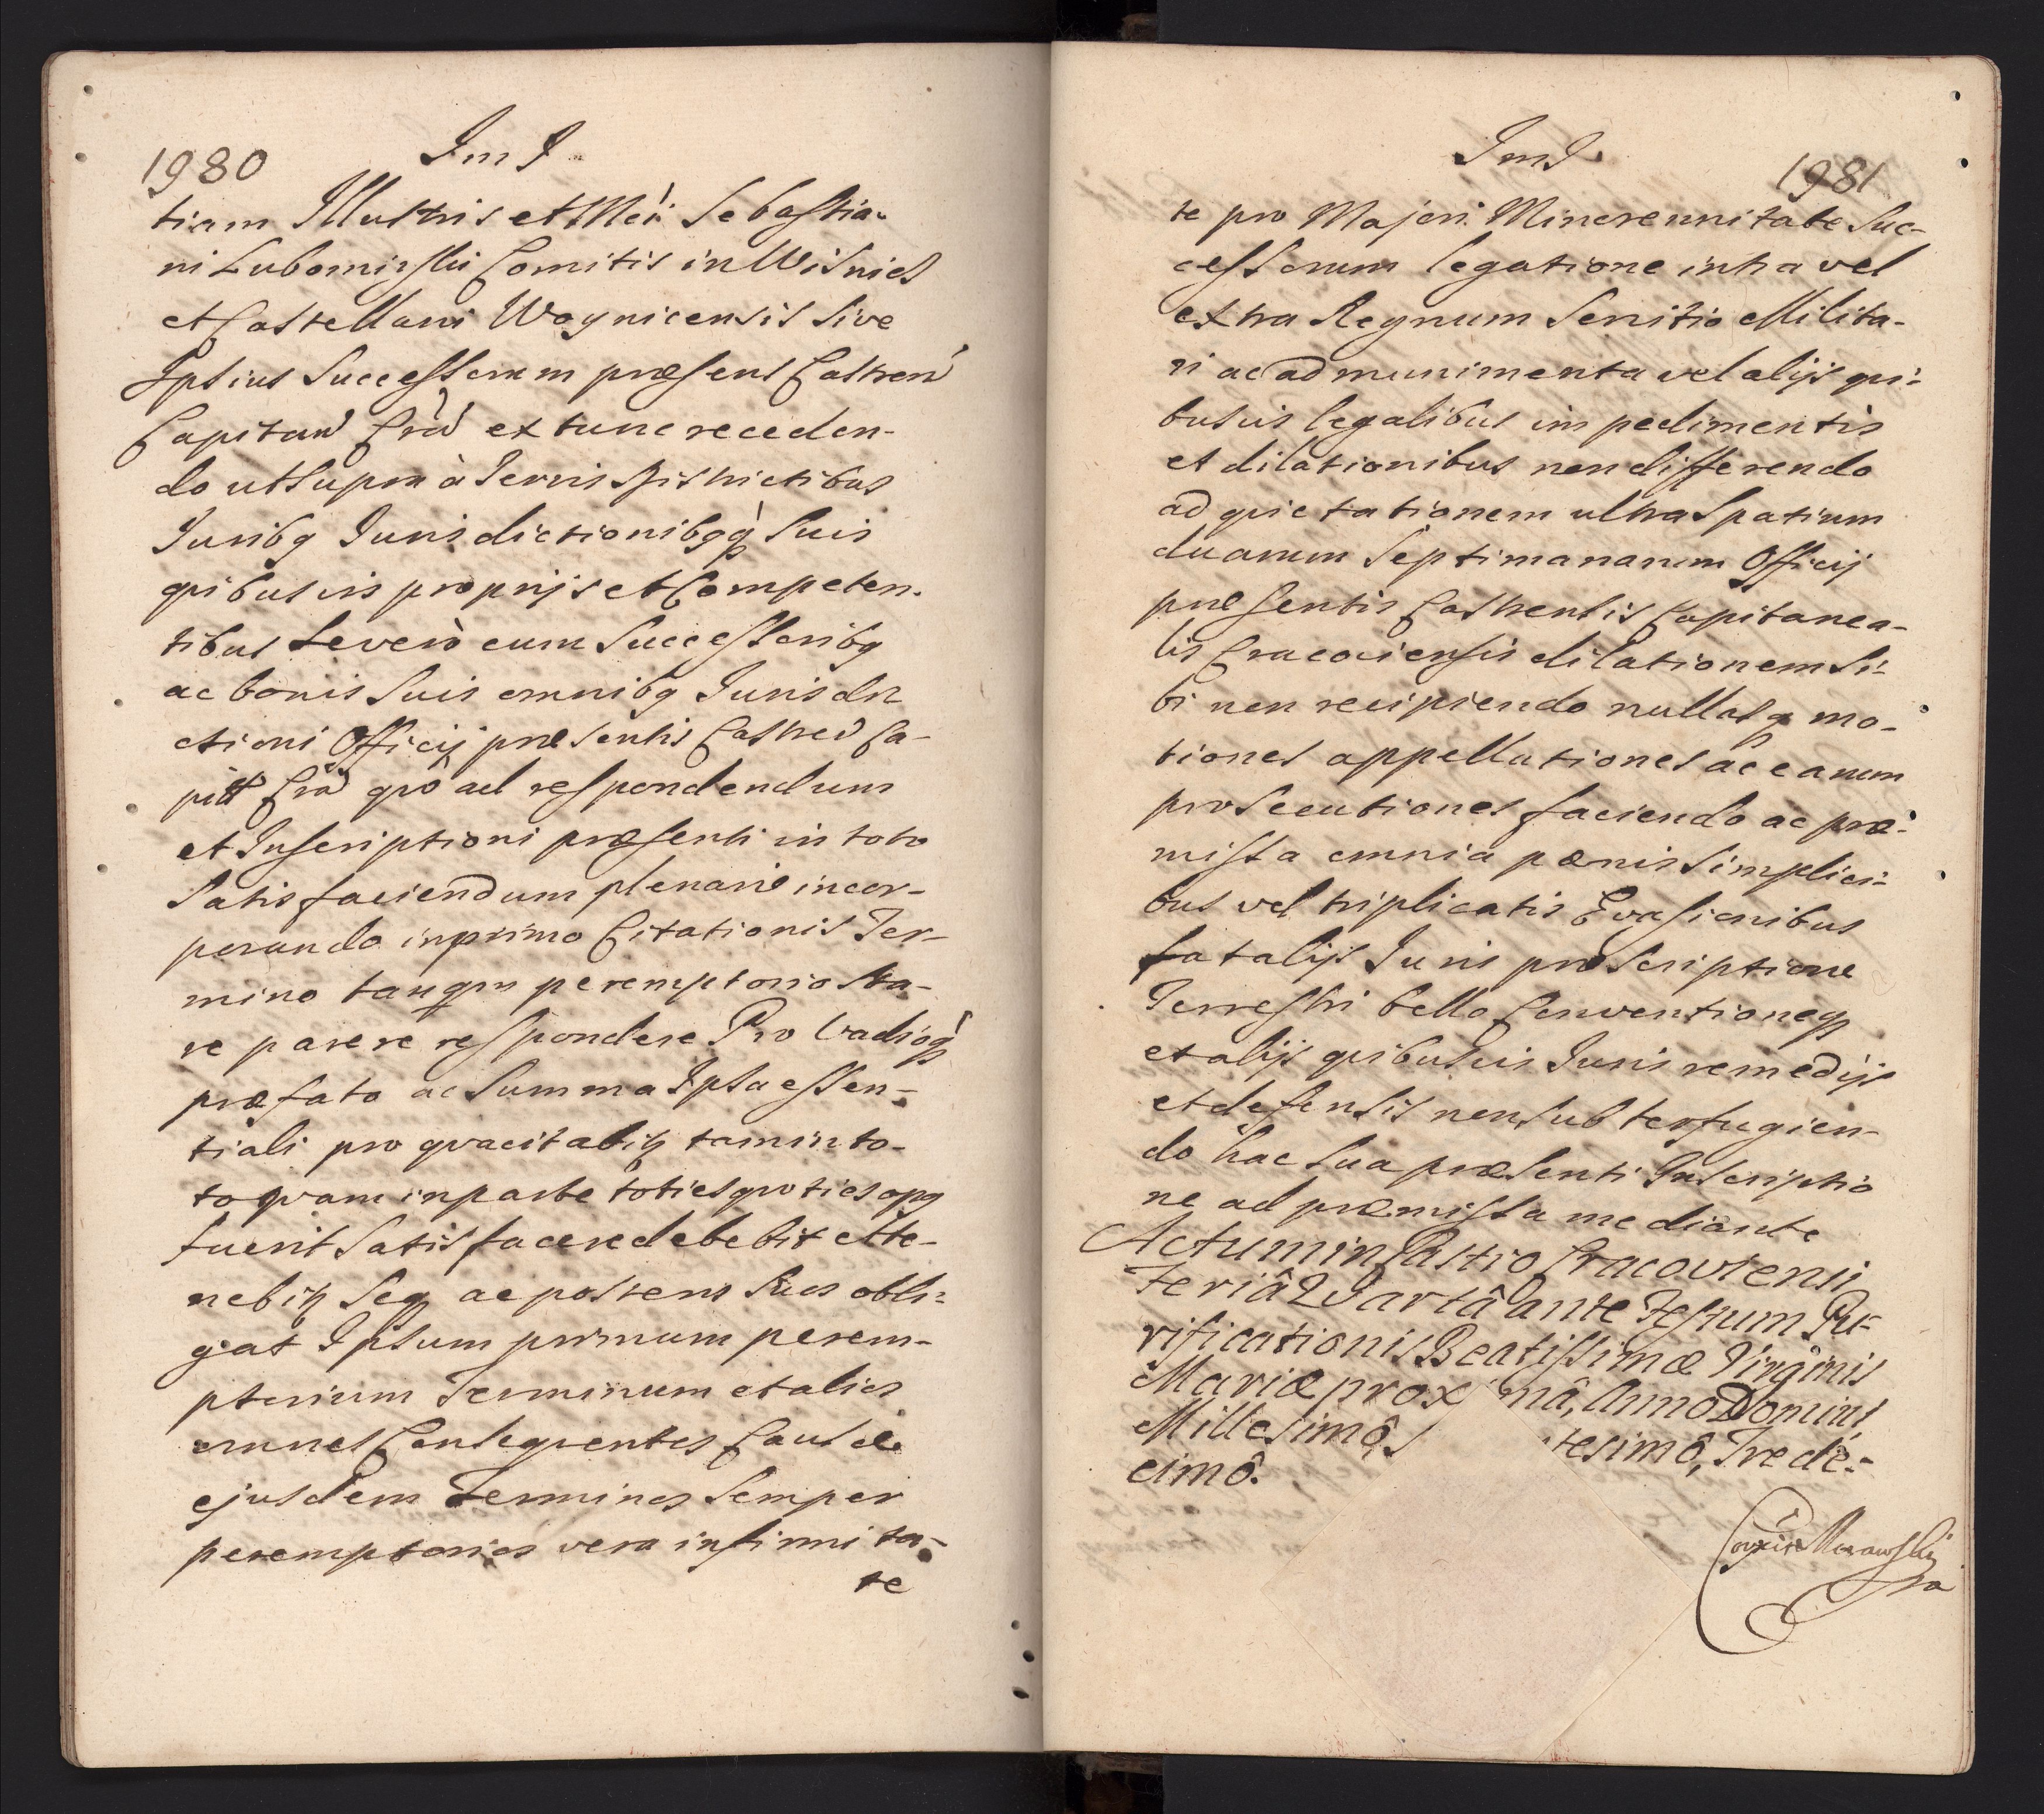 1980
ImJ
tiam Illustris et Mci: Sebastia-
ni Lubomirski Comitis in Wisnicz
et Castellani Woynicensis sive
Ipsius Successorum præsens Castren
Capitan Crac ex tunc receden-
do ut supra à Terris Districtibus
Juribg Jurisdictionibgq Suis
quibusvis proprijs et Competen-
tibus Severò cum Successoribg
ac bonis Suis omnibg Jurisdi-
ctioni Officij præsentis Castren Ca-
pitt Crac quò ad respondendum
et Inscriptioni præsenti in toto
Satisfaciendum plenarie incor-
porando in primo Citationis Ter-
mino tanqm peremptorio sta-
re parere respondere Pro Vadioq
præfato ac Summa Ipsa essen-
tiali pro qva citabitz tam in to-
to qvam in parte toties quoties opg
fuerit Satisfacere debebit et te-
nebitz Seq ac posteros Suos obli-
gat Ipsum primum perem-
ptorium Terminum et alios
omnes Consequentes Causæ
ejusdem Terminos Semper
peremptorios vera infirmita-
te
ImJ
1981
te pro Majori Minore unitate Suc-
cessorum legatione intra vel
extra Regnum Servitio Milita-
ri ac ad munimenta vel alijs qui-
busvis legalibus impedimentis
et dilationibus non differendo
ad quietationem ultra Spatium
duarum Septimanarum Officij
præsentis Castrensis Capitanea-
lis Cracoviensis dilationem Si-
bi non recipiendo nullasq mo-
tiones appellationes ac earum
prosecutiones faciendo ac præ-
missa omnia pænis Simplici-
bus vel triplicatis Evasionibus
fatalijs Juris præscriptione
Terrestri bello Conventioneq
et alijs quibusvis Juris remedijs
et defensis non Subterfugien-
do hac Sua præsenti Inscriptio
ne ad præmissa mediante
Actum in Castro Cracoviensi
Feriâ Quartâ ante Festum Pu-
rificationis Beatissimæ Virginis
Mariæ prox mâ, Anno Domini
Millesimô, S tesimô, Trede-
cimô.